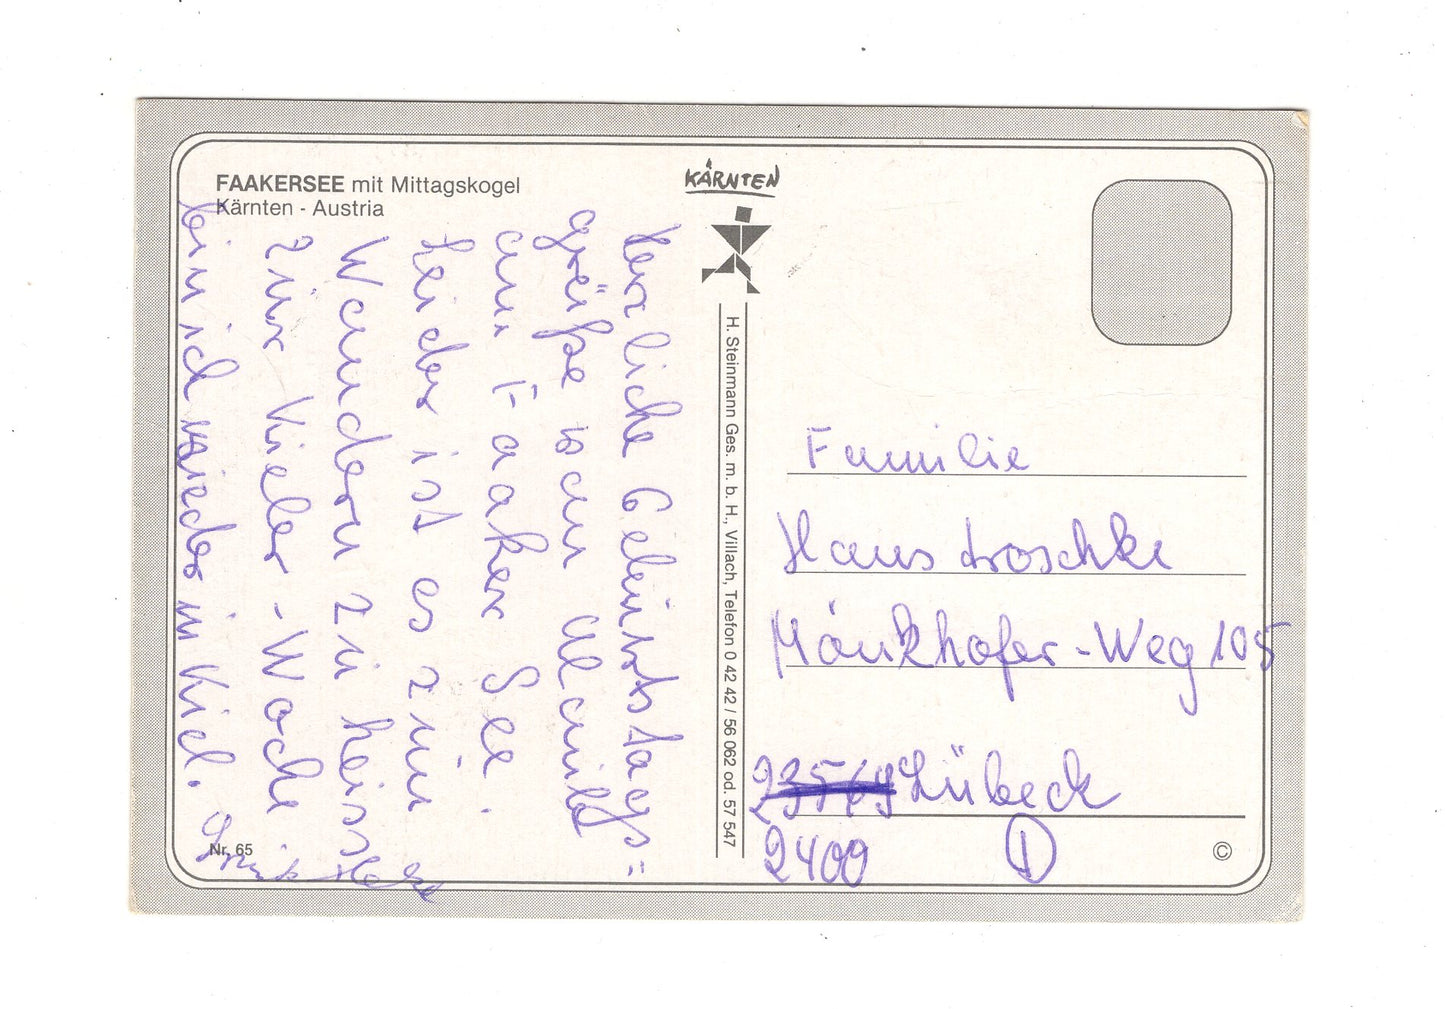 FAAKERSEE mit Mittagskogel
Kärnten - Austria
KÄRNTEN
Herzliche Geburtstags=
grüße von
am Faaker See.
Leider ist es zum
Wandern zu heiss
zur Kieler-Woche
bin ich wieder in Kiel.
Nr. 65
H. Steinmann Ges. m. b. H., Villach, Telefon 0 42 42 / 56 062 od. 57 547
Familie
Hans
Mönkhofer-Weg 105
Lübeck
2400 D
©